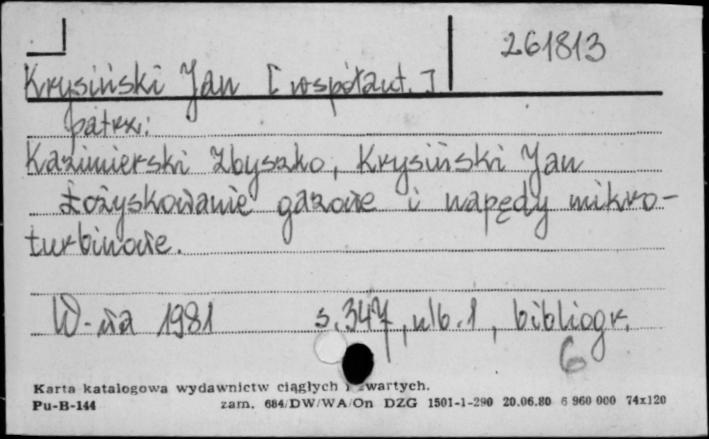 261813
Krysiński Jan [współaut.]
patrz:
Kazimierski Zbyszko, Krysiński Jan
Łożyskowanie gazowe i napędy mikro-
turbinowe.
W-wa 1981 s. 347, nlb. 1, bibliogr.
6
Karta katalogowa wydawnictw ciągłych i zwartych.
Pu-B-144 zam. 684/DW/WA/On DZG 1501-1-290 20.06.80 6 960 000 74x120